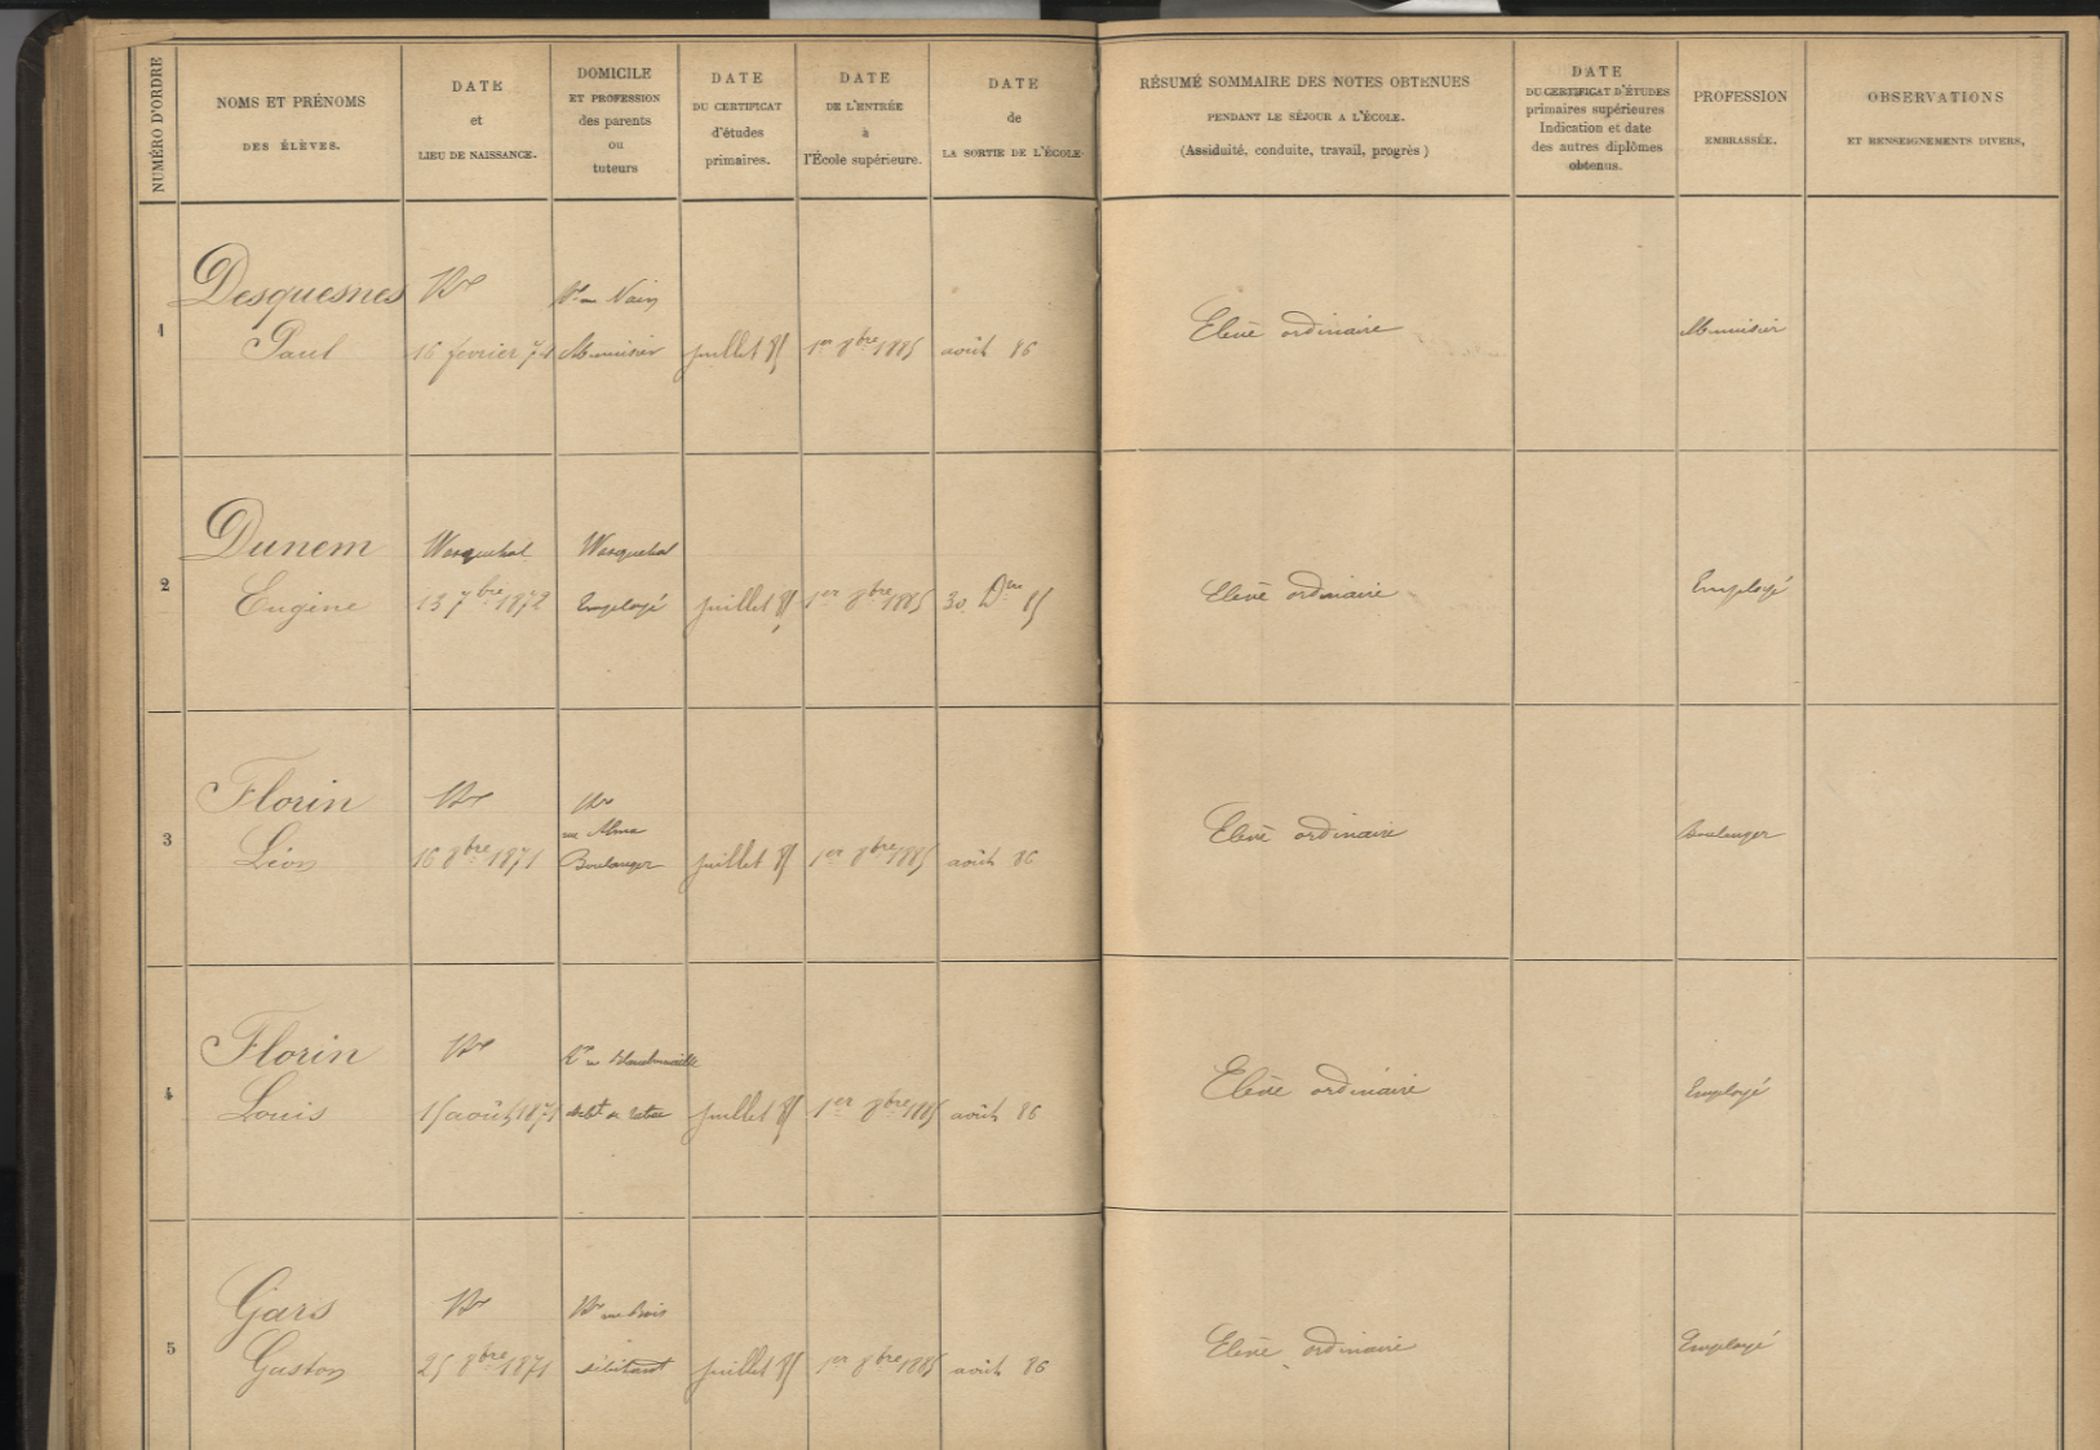 NUMÉRO D'ORDRE
NOMS ET PRÉNOMS
DES ÉLÈVES.
DATE
et
LIEU DE NAISSANCE.
DOMICILE
ET PROFESSION
des parents
ou
tuteurs
DATE
DU CERTIFICAT
d'études
primaires.
DATE
DE L'ENTRÉE
à
l'École supérieure.
DATE
de
LA SORTIE DE L'ÉCOLE
RÉSUMÉ SOMMAIRE DES NOTES OBTENUES
PENDANT LE SÉJOUR A L'ÉCOLE.
(Assiduité, conduite, travail, progrès)
DATE
DU CERTIFICAT D'ÉTUDES
primaires supérieures
Indication et date
des autres diplômes
obtenus.
PROFESSION
EMBRASSÉE.
OBSERVATIONS
ET RENSEIGNEMENTS DIVERS,
1
Desquesnes
Paul
Rx
16 fevrier 71
rue Nain
Menuisier
juillet 85
1er 8bre 1885
août 86
Elève ordinaire
Menuisier
2
Dunem
Eugène
Wasquehal
13 7bre 1872
Wasquehal
Employé
juillet 85
1er 8bre 1885
30 Dre 85
Elève ordinaire
Employé
3
Florin
Léon
Rx
16 8bre 1871
Rx
rue Alma
Boulanger
juillet 85
1er 8bre 1885
août 86
Elève ordinaire
Boulanger
4
Florin
Louis
Rx
15 août 1871
Rx Blanchemaille
debt de tabac
juillet 85
1er 8bre 1885
août 86
Elève ordinaire
Employé
5
Gars
Gaston
Rx
25 8bre 1871
Rx rue Bois
débitant
juillet 85
1er 8bre 1885
août 86
Elève ordinaire
Employé